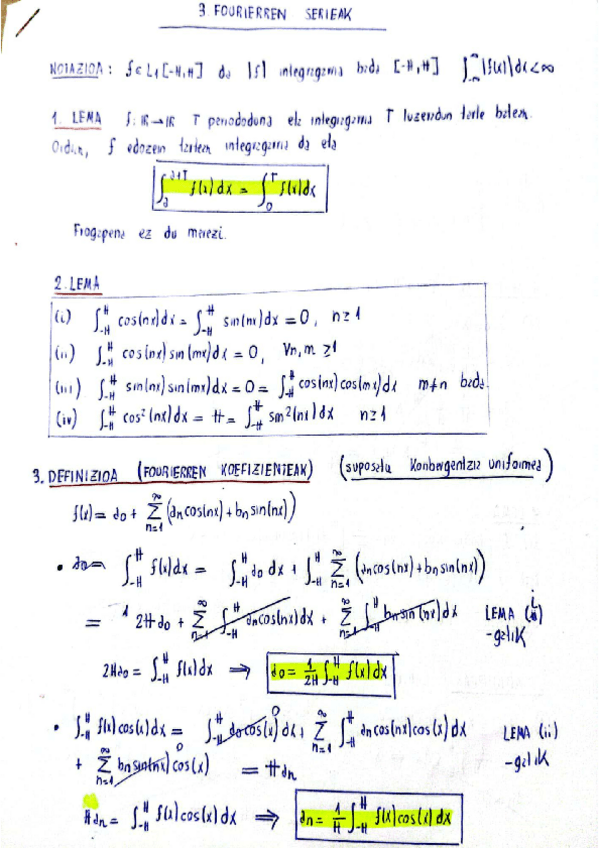 3. FOURIERREN SERIEAK
NOTAZIOA: f ∈ L₁[-π,π] da |f| integragarria bada [-π,π] ∫_{-π}^{π}|f(x)|dx<∞
1. LEMA f: ℝ→ℝ T periododuna eta integragarria T luzeradun tarte batean.
Orduan, f edozein tartean integragarria da eta
∫_a^{a+T} f(x)dx = ∫_0^T f(x)dx
Frogapena ez du merezi.
2. LEMA
(i) ∫_{-π}^{π} cos(nx)dx = ∫_{-π}^{π} sin(nx)dx = 0, n≥1
(ii) ∫_{-π}^{π} cos(nx) sin(mx)dx = 0, ∀n,m ≥1
(iii) ∫_{-π}^{π} sin(nx) sin(mx)dx = 0 = ∫_{-π}^{π} cos(nx) cos(mx)dx m≠n bada.
(iv) ∫_{-π}^{π} cos²(nx)dx = π = ∫_{-π}^{π} sin²(nx)dx n≥1
3. DEFINIZIOA (FOURIERREN KOEFIZIENTEAK) (suposatu konbergentzia uniformea)
f(x) = a₀ + Σ_{n=1}^{∞} (aₙcos(nx) + bₙsin(nx))
• a₀= ∫_{-π}^{π} f(x)dx = ∫_{-π}^{π} a₀ dx + ∫_{-π}^{π} Σ_{n=1}^{∞} (aₙcos(nx) + bₙsin(nx))
= 2πa₀ + Σ_{n=1}^{∞} ∫_{-π}^{π} aₙcos(nx)dx + Σ_{n=1}^{∞} ∫_{-π}^{π} bₙsin(nx)dx LEMA (i)-gatik
2πa₀ = ∫_{-π}^{π} f(x)dx ⟹ a₀ = 1/2π ∫_{-π}^{π} f(x)dx
• ∫_{-π}^{π} f(x)cos(x)dx = ∫_{-π}^{π} a₀cos(x)dx 0 + Σ_{n=1}^{∞} ∫_{-π}^{π} aₙcos(nx)cos(x)dx LEMA (ii)-gatik
+ Σ_{n=1}^{∞} bₙsin(nx)cos(x) 0 = πaₙ
πaₙ = ∫_{-π}^{π} f(x)cos(x)dx ⟹ aₙ = 1/π ∫_{-π}^{π} f(x)cos(x)dx